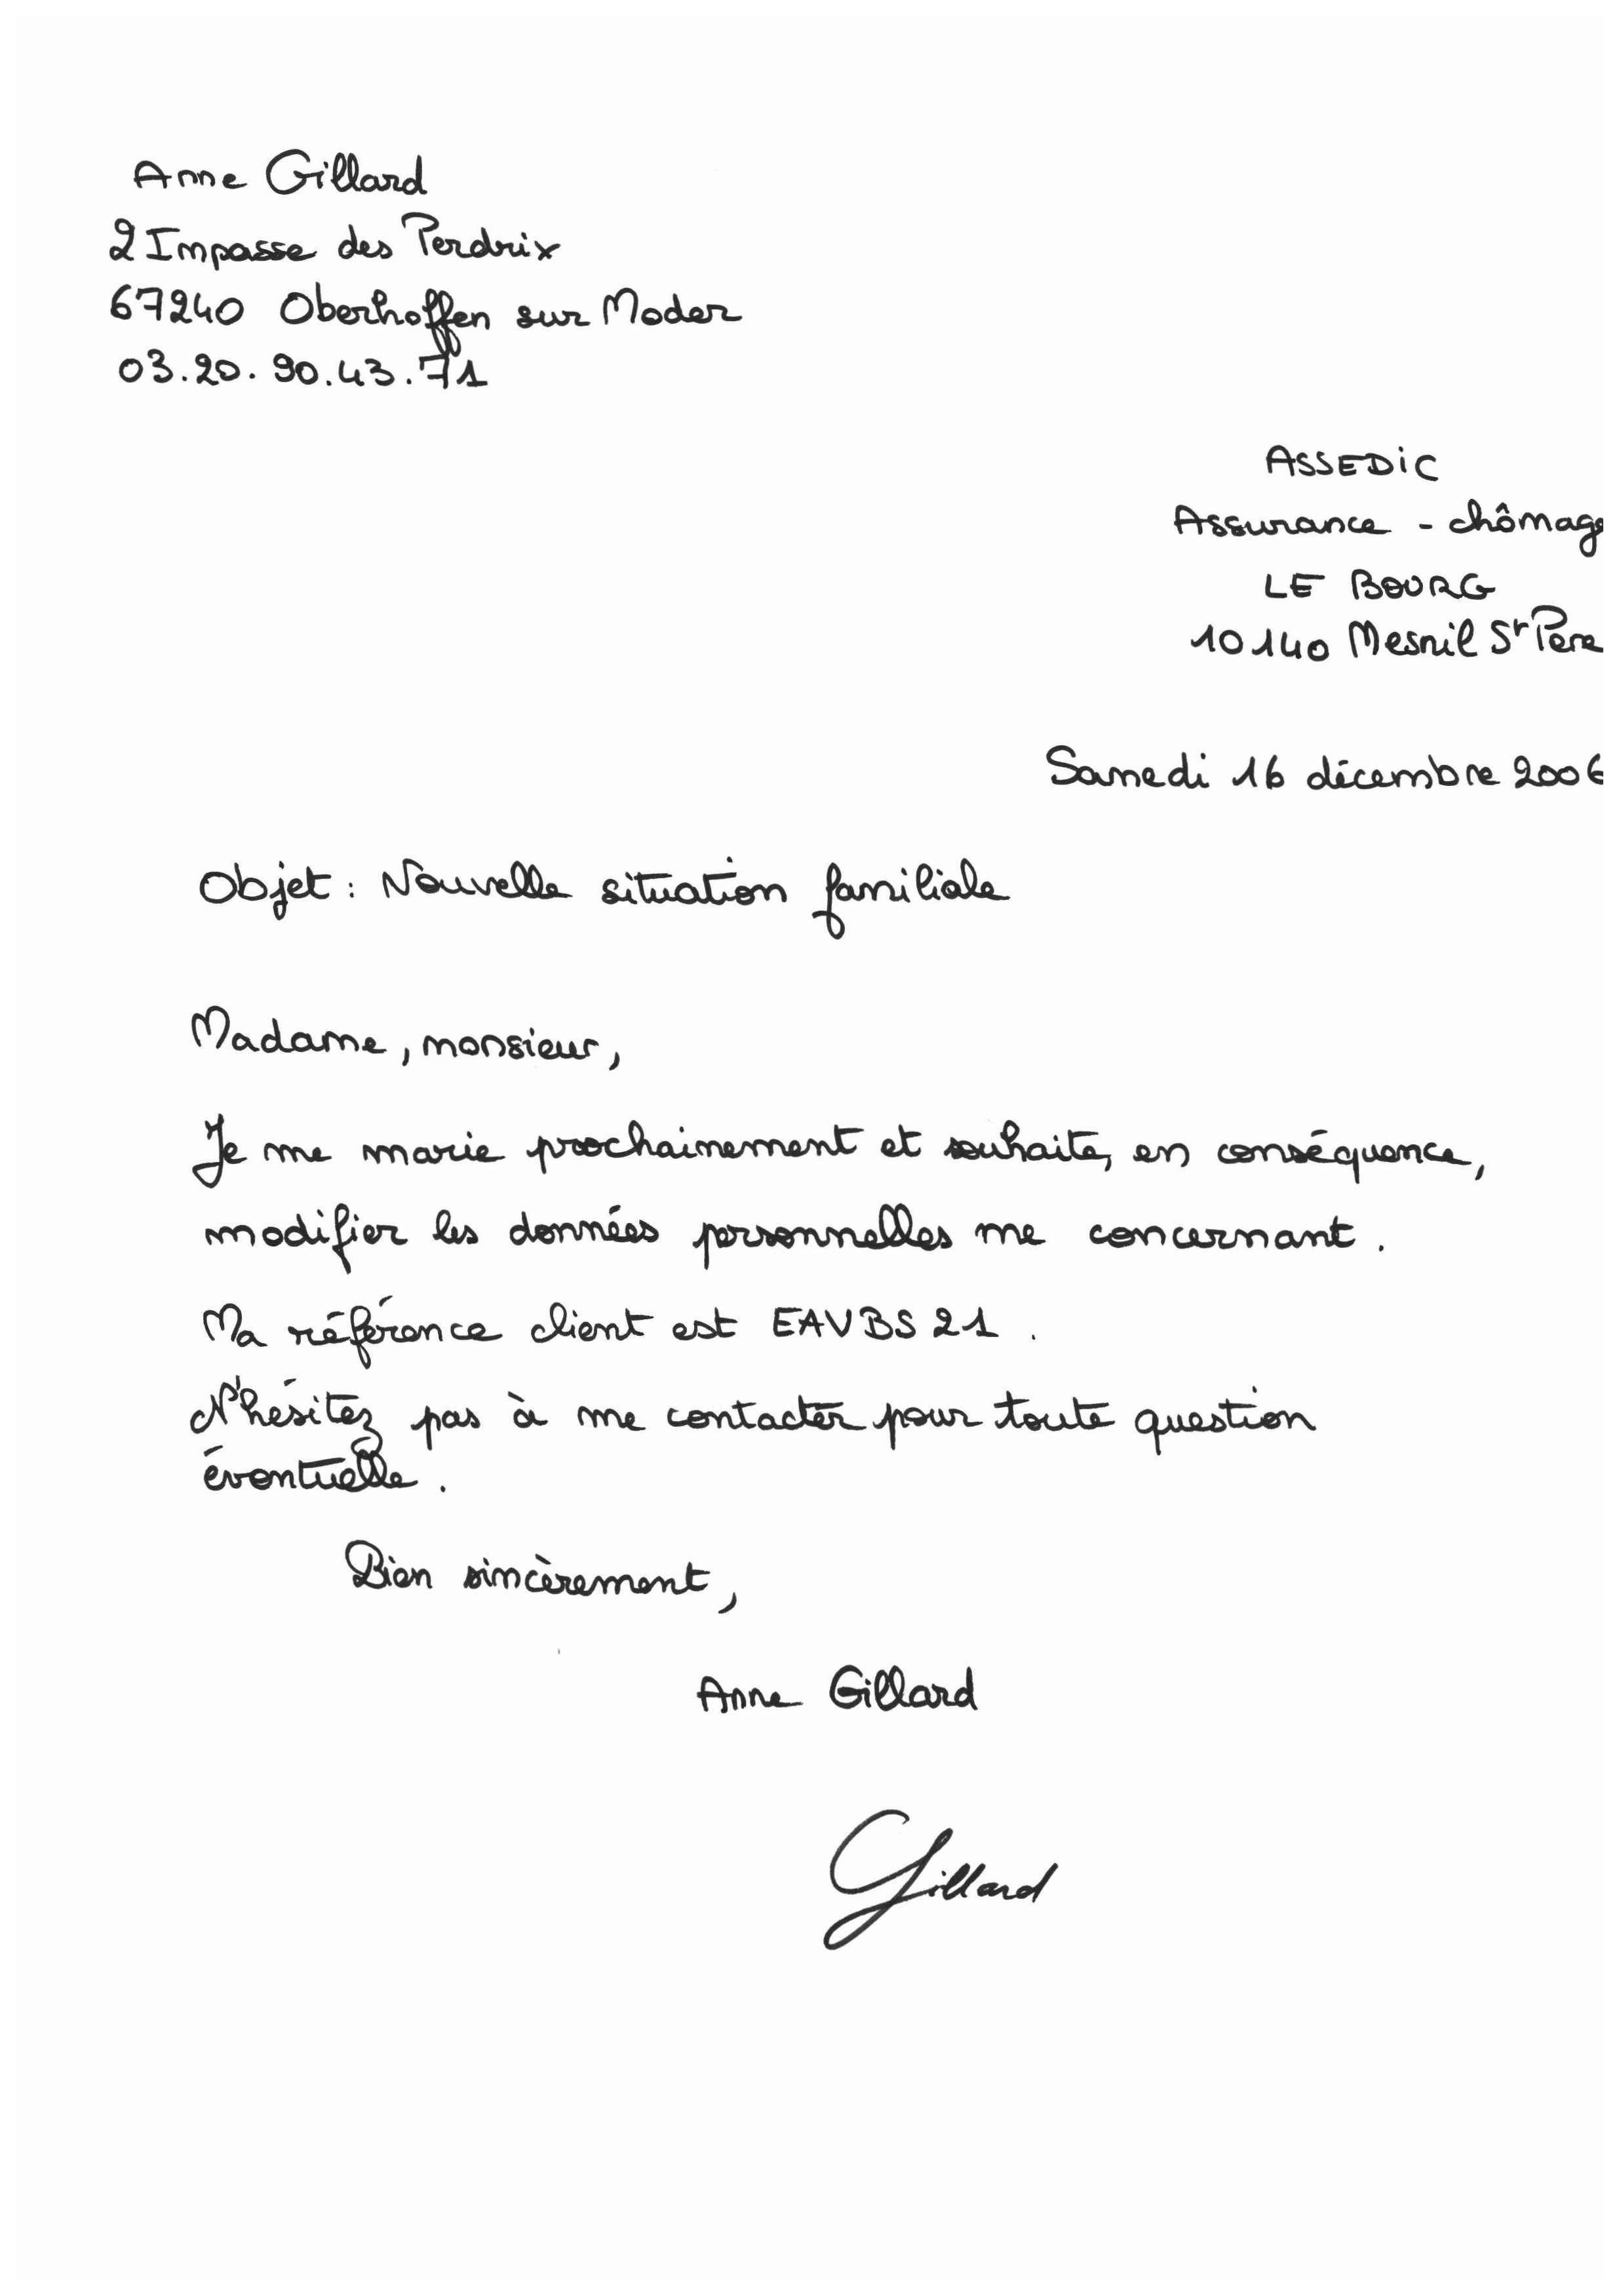 Anne Gillard
2 Impasse des Perdrix
67240 Oberhoffen sur Moder
03.20.90.43.71
ASSEDiC
Assurance - chômage
LE BOURG
10140 Mesnil St Pere
Samedi 16 décembre 2006
Objet : Nouvelle situation familiale
Madame, monsieur,
Je me marie prochainement et souhaite, en conséquence,
modifier les données personnelles me concernant.
Ma référence client est EAVBS21.
N'hésitez pas à me contacter pour toute question
éventuelle.
Bien sincèrement,
Anne Gillard
Gillard